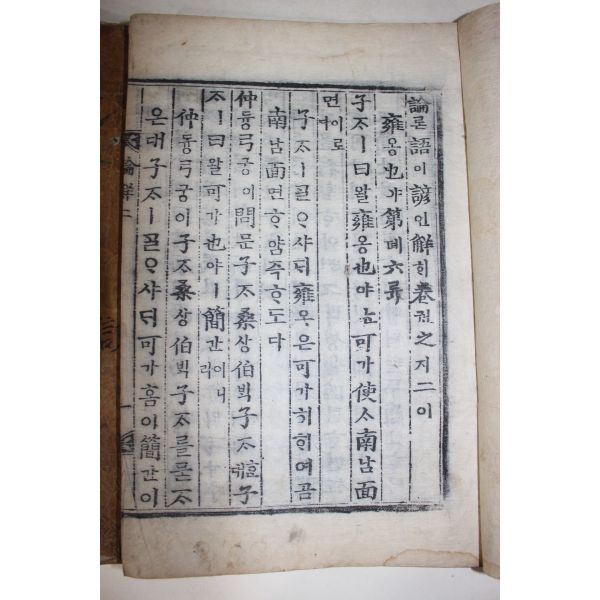 論론語어諺언解ᄒᆡ卷권之지二이
雍옹也야第뎨六륙
子ᄌᆞㅣ曰왈雍옹也야ᄂᆞᆫ可가使ᄉᆞ南남面
면이로다
子ᄌᆞㅣᄀᆞᆯᄋᆞ샤ᄃᆡ雍옹은可가히ᄒᆞ여곰
南남面면ᄒᆞ얌즉ᄒᆞ도다
仲듕弓궁이問문子ᄌᆞ桑상伯ᄇᆡᆨ子ᄌᆞ子
ᄌᆞㅣ曰왈可가也야ㅣ簡간이니라
仲듕弓궁이子ᄌᆞ桑상伯ᄇᆡᆨ子ᄌᆞ를묻ᄌᆞ
온대子ᄌᆞㅣᄀᆞᆯᄋᆞ샤ᄃᆡ可가홈이簡간이
論解二 一